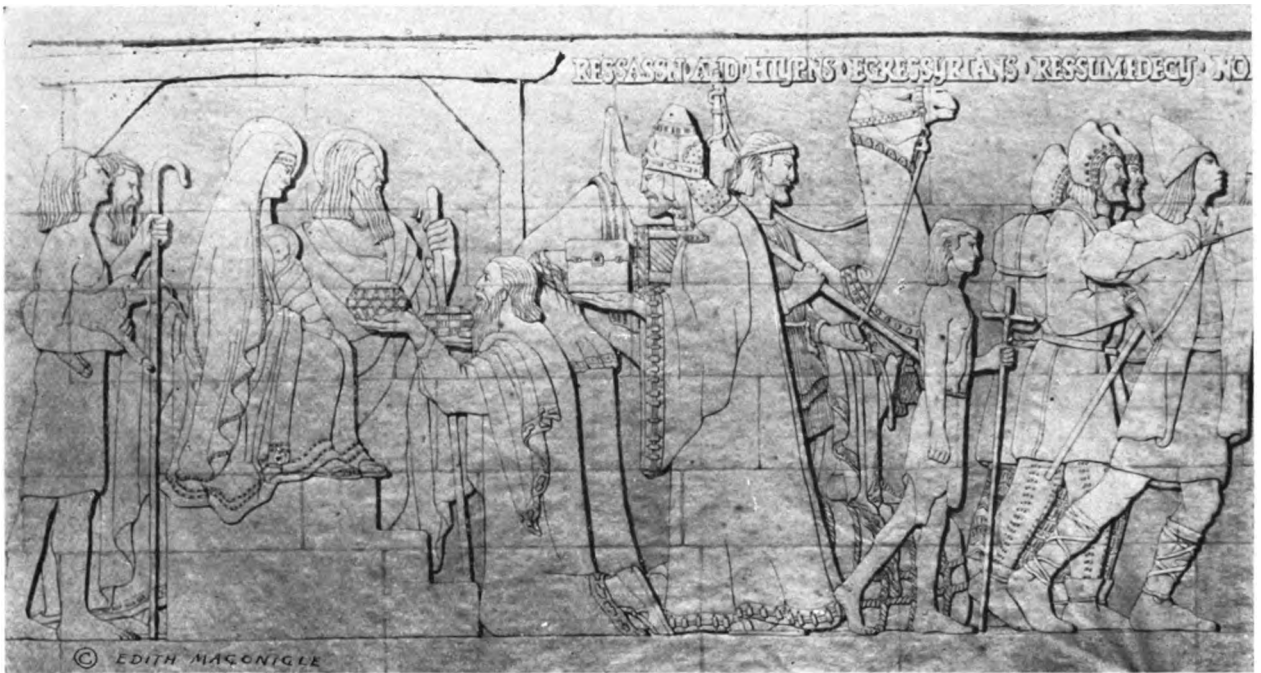 RESSASSN AND HIYENS · EGRESSYRIANS · RESSUMEDEGY · NO
© EDITH MAGONIGLE